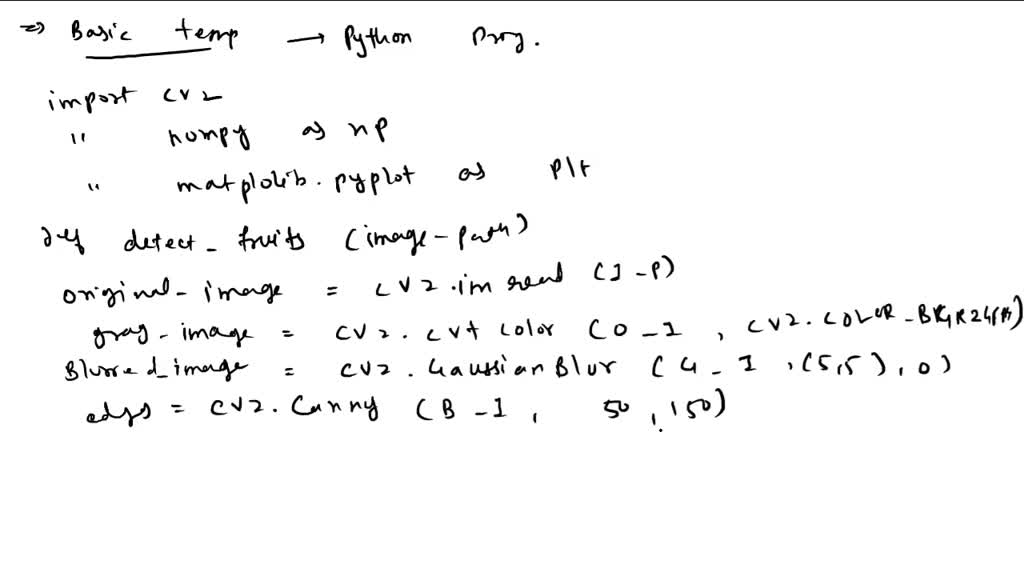 => Basic temp → Python Prog.
import cv2
" numpy as np
" matplotlib.pyplot as plt
def detect_fruits (image-path)
original_image = cv2.imread (I-P)
gray_image = cv2.cvtcolor (O-I, cv2.COLOR_BGR2GRAY)
Blurred_image = cv2.GaussianBlur (G-I, (5,5), 0)
edges = cv2.Canny (B-I, 50, 150)